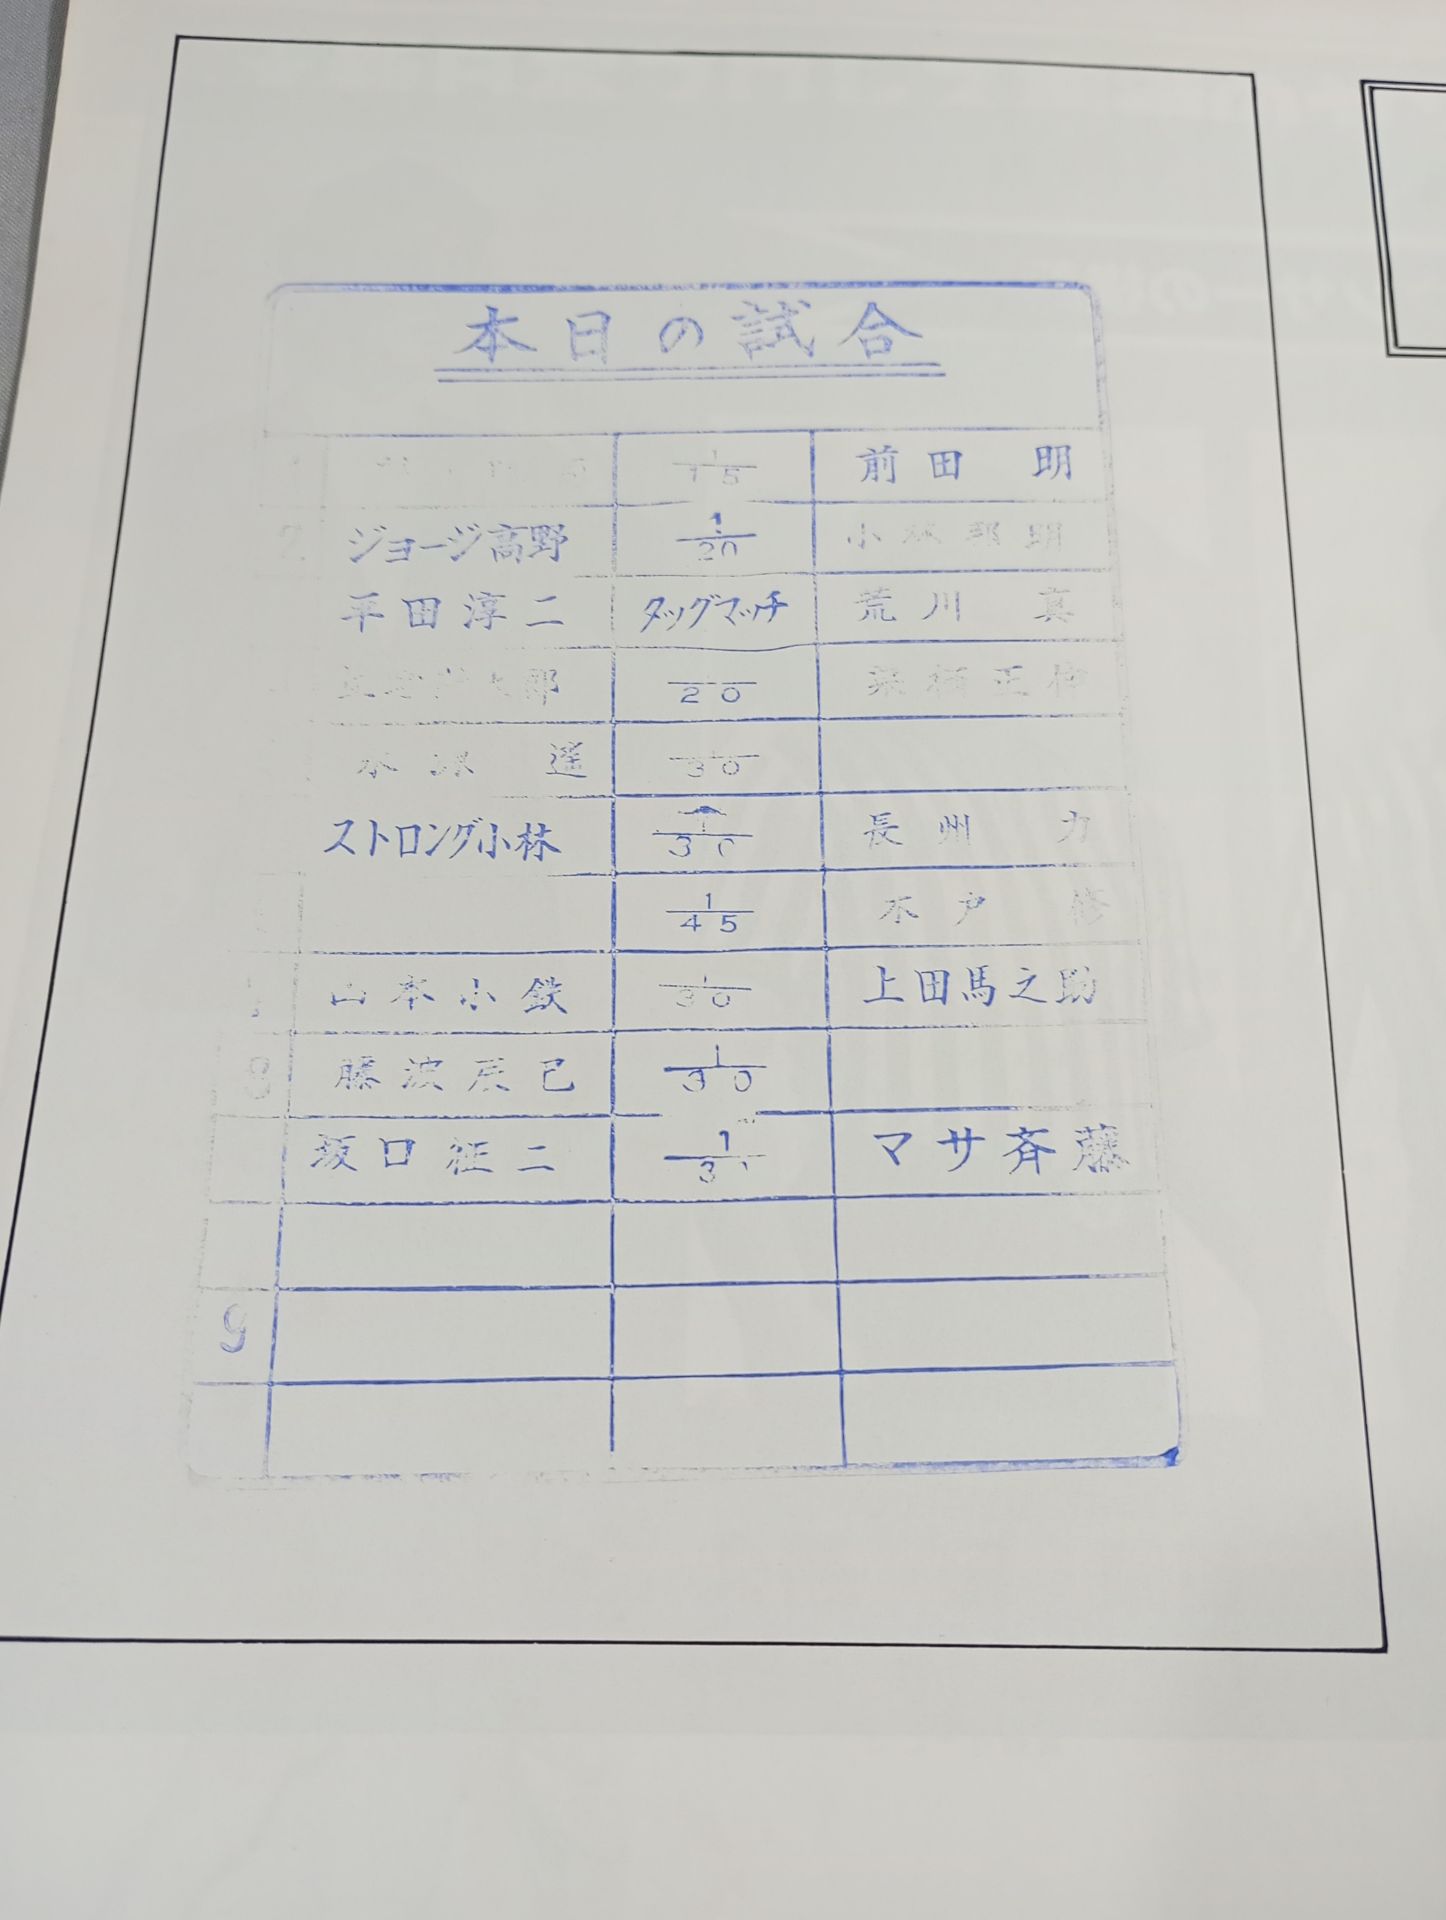 本日の試合
1 1/15 前田 明
2 ジョージ高野 1/20 小林邦明
平田淳二 タッグマッチ 荒川 真
1/20 栗栖正伸
木村 1/30
ストロング小林 1/30 長州 力
1/45 木戸 修
山本小鉄 1/30 上田馬之助
8 藤波辰巳 1/30
坂口征二 1/3 マサ斉藤
9